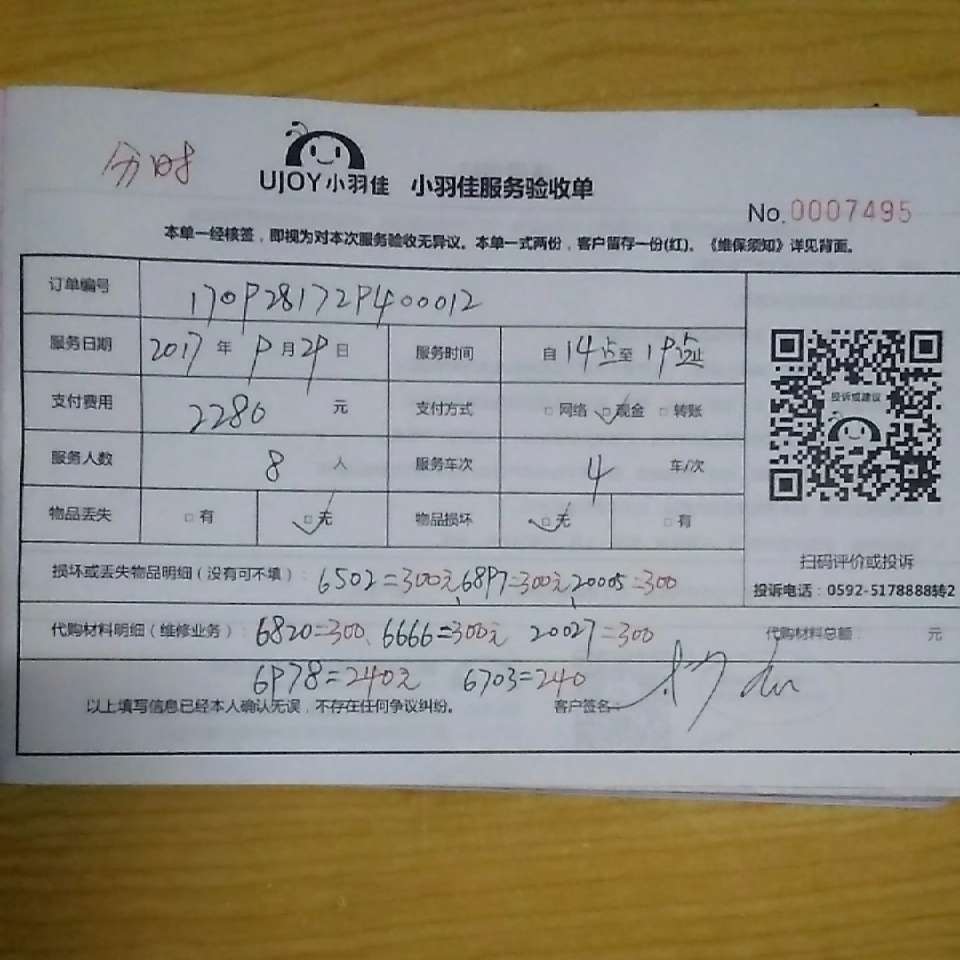 分时
UJOY小羽佳 小羽佳服务验收单
No.0007495
本单一经核签，即视为对本次服务验收无异议。本单一式两份，客户留存一份(红)。《维保须知》详见背面。
订单编号 170928172940012
服务日期 2017年9月29日 服务时间 自14点至19点止
支付费用 2280元 支付方式 □网络 □现金 □转账
服务人数 8人 服务车次 4车/次
物品丢失 □有 □无 物品损坏 □无 □有
投诉或建议
扫码评价或投诉
投诉电话：0592-5178888转2
损坏或丢失物品明细（没有可不填）： 6502=300元、6897=300元、20005=300
代购材料明细（维修业务）： 6820=300、6666=300元 20027=300 代购材料总额： 元
6978=240元 6703=240
以上填写信息已经本人确认无误，不存在任何争议纠纷。 客户签名：